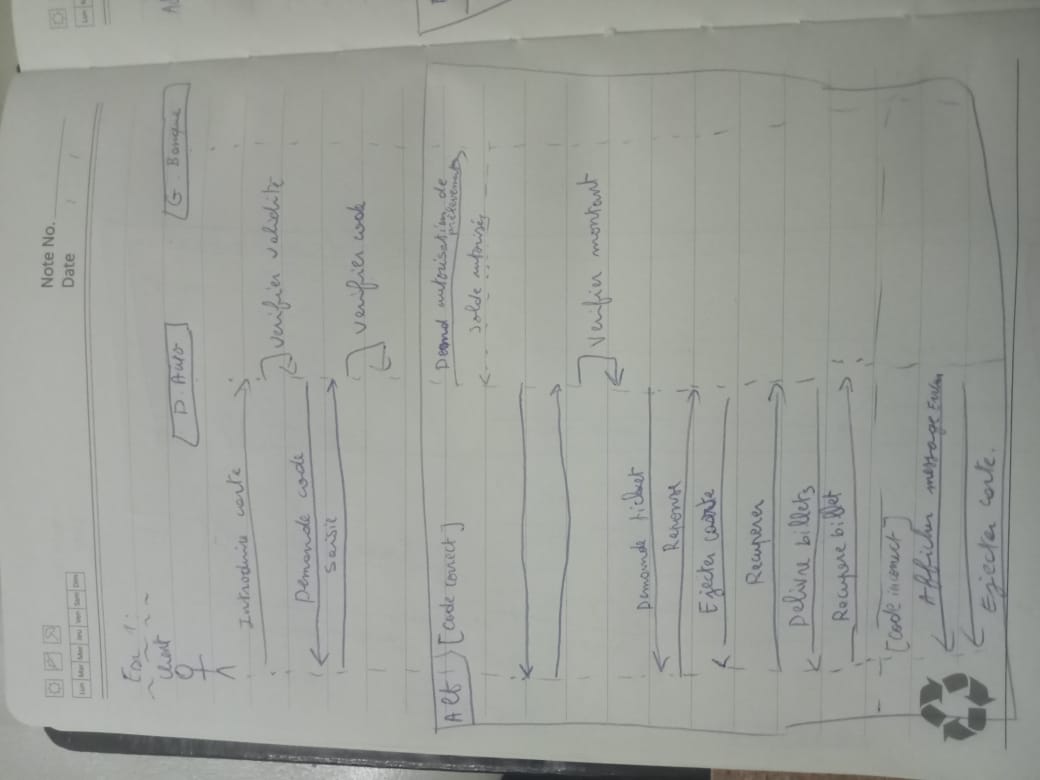 Note No.
Date
Lun Mar Mer Jeu Ven Sam Dim
Exo 1:
Client
D. Auto
G. Banque
Introduire carte
Verifier validité
Demande code
Saisie
Verifier code
Alt
[code correct]
Demand autorisation de prélevement
Solde autorisé
Verifier montant
Demande ticket
Reponse
Ejecter carte
Recuperer
Delivre billets
Recupere billet
[code incorrect]
Afficher message
Ejecter carte.